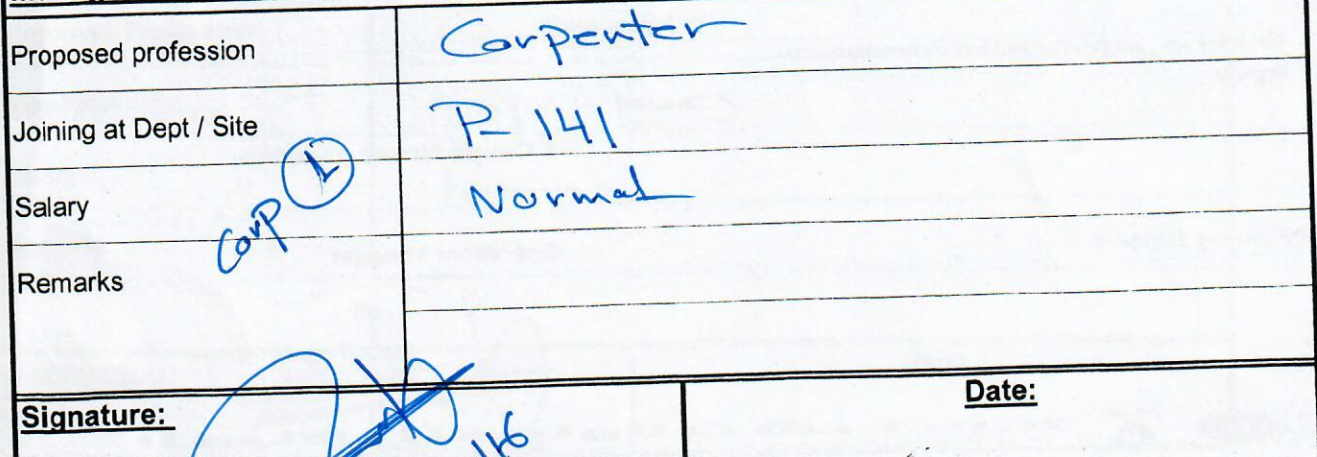 Proposed profession Carpenter
Joining at Dept / Site P-141
Salary Normal
Carp 1
Remarks
Signature: Date: